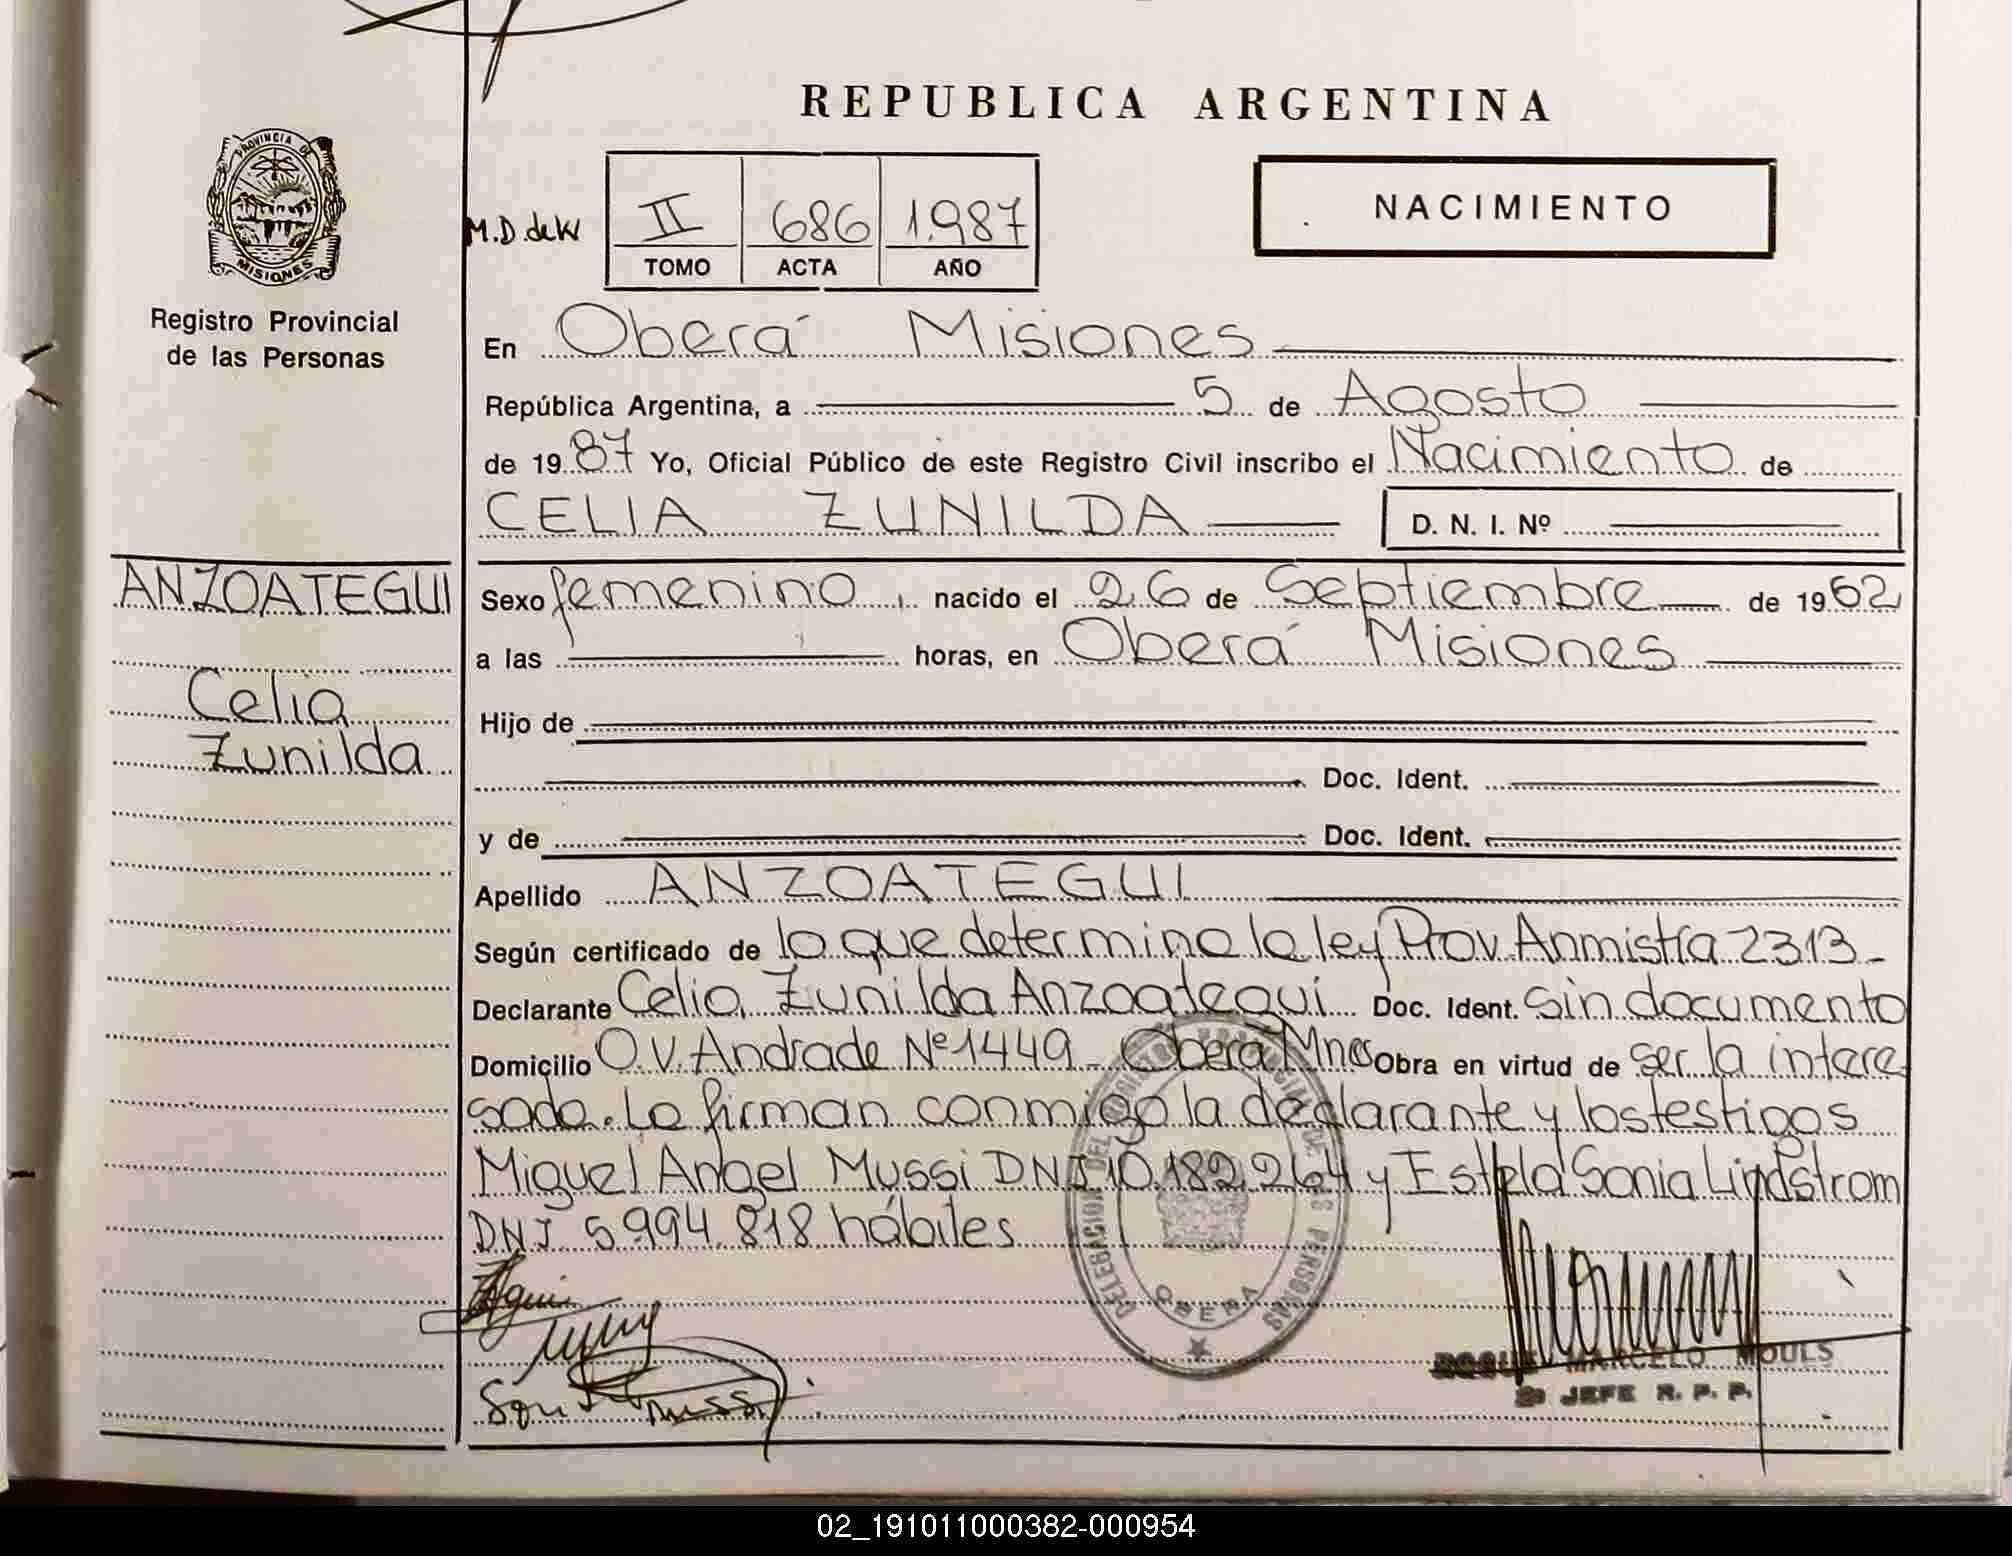 REPUBLICA ARGENTINA
PROVINCIA DE
MISIONES
Registro Provincial
de las Personas
M.D. de K
II 686 1.987
TOMO ACTA AÑO
NACIMIENTO
En Oberá Misiones
República Argentina, a 5 de Agosto
de 1987 Yo, Oficial Público de este Registro Civil inscribo el Nacimiento de
CELIA ZUNILDA D. N. I. Nº
ANZOATEGUI
Celia
Zunilda
Sexo femenino, nacido el 26 de Septiembre de 1962
a las horas, en Oberá Misiones
Hijo de
Doc. Ident.
y de Doc. Ident.
Apellido ANZOATEGUI
Según certificado de lo que determina la ley Prov. Anmistía 2313-
Declarante Celia Zunilda Anzoategui Doc. Ident. Sin documento
Domicilio O.V. Andrade Nº 1449 - Oberá Mnes Obra en virtud de ser la intere
sada. La firman conmigo la declarante y los testigos
Miguel Angel Mussi DNI 10.182.264 y Estela Sonia Lindstrom
DNI 5.994.818 hábiles
DELEGACION DEL REGISTRO PROVINCIAL DE LAS PERSONAS
OBERA
ROQUE MARCELO MOULS
2º JEFE R. P. P.
02_191011000382-000954